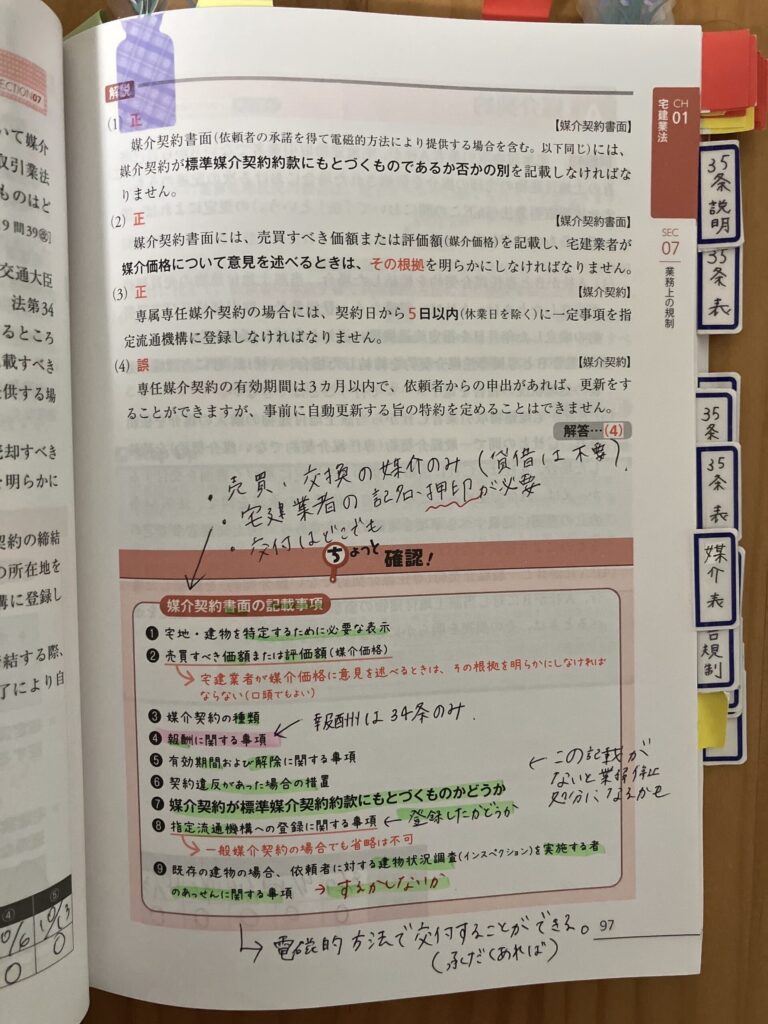 ECTION07
いて媒介
取引業法
ものはど
9 問39㊡
交通大臣
法第34
るところ
載すべき
供する場
却すべき
を明らかに
契約の締結
の所在地を
構に登録し
結する際、
了により自
④ ⑤
10/6 10/13
○ ○
解説
(1) 正 【媒介契約書面】
媒介契約書面(依頼者の承諾を得て電磁的方法により提供する場合を含む。以下同じ)には、
媒介契約が標準媒介契約約款にもとづくものであるか否かの別を記載しなければな
りません。
(2) 正 【媒介契約書面】
媒介契約書面には、売買すべき価額または評価額(媒介価格)を記載し、宅建業者が
媒介価格について意見を述べるときは、その根拠を明らかにしなければなりません。
(3) 正 【媒介契約】
専属専任媒介契約の場合には、契約日から5日以内(休業日を除く)に一定事項を指
定流通機構に登録しなければなりません。
(4) 誤 【媒介契約】
専任媒介契約の有効期間は3カ月以内で、依頼者からの申出があれば、更新をす
ることができますが、事前に自動更新する旨の特約を定めることはできません。
解答…(4)
・売買、交換の媒介のみ(貸借は不要).
・宅建業者の記名、押印が必要
・交付はどこでも
ちょっと確認!
媒介契約書面の記載事項
❶ 宅地・建物を特定するために必要な表示
❷ 売買すべき価額または評価額(媒介価格)
宅建業者が媒介価格に意見を述べるときは、その根拠を明らかにしなければ
ならない(口頭でもよい)
❸ 媒介契約の種類
❹ 報酬に関する事項 ← 報酬は34条のみ.
❺ 有効期間および解除に関する事項
❻ 契約違反があった場合の措置
❼ 媒介契約が標準媒介契約約款にもとづくものかどうか
← この記載が
ないと業務停止
処分になるかも
❽ 指定流通機構への登録に関する事項 ← 登録したかどうか
一般媒介契約の場合でも省略は不可
❾ 既存の建物の場合、依頼者に対する建物状況調査(インスペクション)を実施する者
のあっせんに関する事項 → するかしないか
↳ 電磁的方法で交付することができる。
(承だくあれば)
97
CH
01
宅建業法
SEC
07
業務上の規制
35条説明
35条表
35条
35条表
媒介表
規制